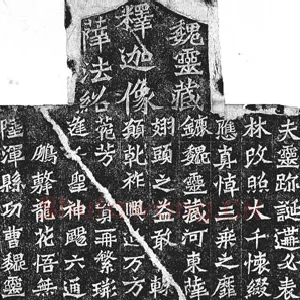 魏靈藏
釋迦像
薛法紹
夫靈跡誕遘必表
林改照大千懷綴
應真悼三乘之靡
魏靈藏河東薛
翅頭之益敢輒
願乾祚興延万方
菀芳實再繁荊
逢千聖神颺六通
鵬擊龍花悟無
陸渾縣功曹魏靈